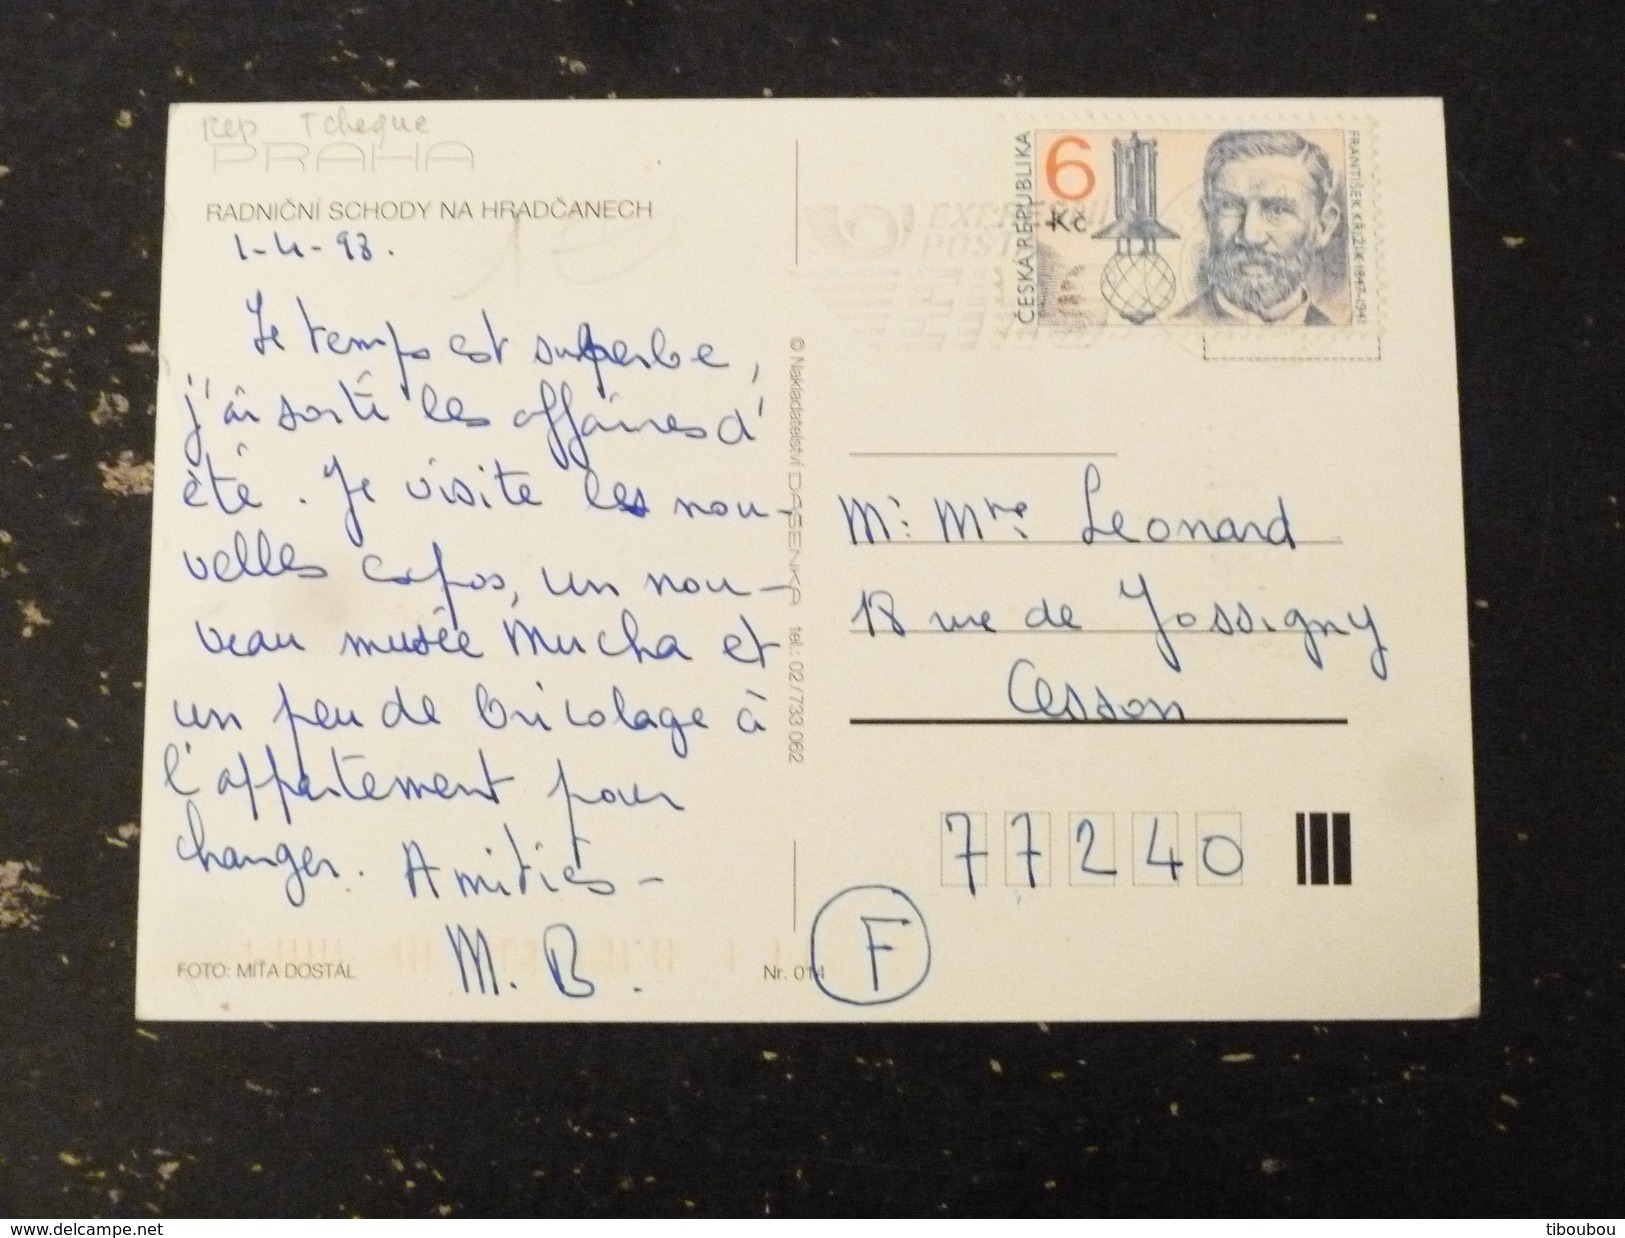 Rep Tcheque
PRAHA
RADNIČNÍ SCHODY NA HRADČANECH
1-4-98.
Le temps est superbe,
j'ai sorti les affaires d'
été. Je visite les nou-
velles expos, un nou-
veau musée Mucha et
un peu de bricolage à
l'appartement pour
changer. Amitiés -
M. B.
FOTO: MÍŤA DOSTÁL
Nr. 014
© Nakladatelství DASENKA tel.: 02/733 062
EXPRESNÍ
POST
ČESKÁ REPUBLIKA
6
Kč
FRANTIŠEK KŘIŽÍK 1847-1941
Mr. Mme. Leonard
18 rue de Jossigny
Cesson
77240
F
www.delcampe.net
tiboubou